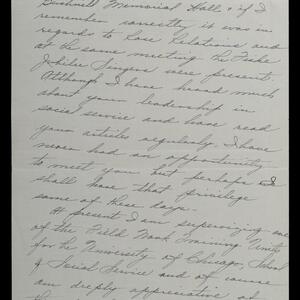 Bushnell Memorial Hall & if I
remember correctly it was in
regards to Race Relations and
at the same meeting the Fiske
Jubilee Singers were present.
Although I have heard much
about your leadership in
social service and have read
your articles regularly, I have
never had an opportunity
to meet you but perhaps I
shall have that privilege
some of these days.
At present I am supervising one
of the Field Work Training Units
for the University of Chicago, School
of Social Service and of course
am deeply appreciative of